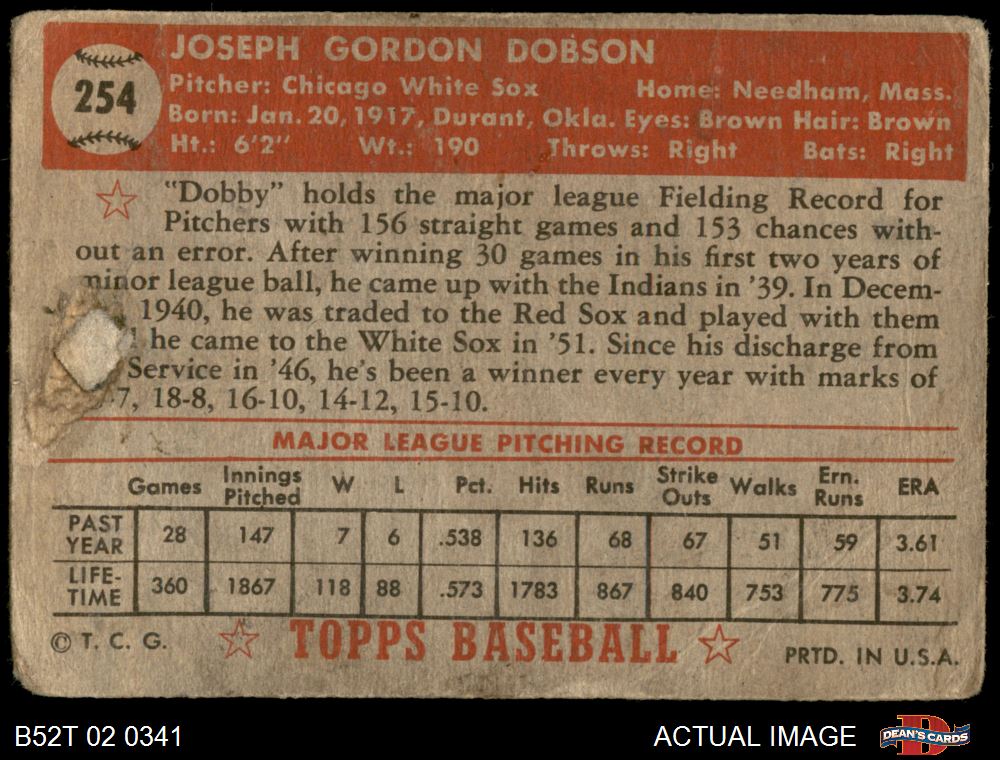 JOSEPH GORDON DOBSON
254
Pitcher: Chicago White Sox Home: Needham, Mass.
Born: Jan. 20, 1917, Durant, Okla. Eyes: Brown Hair: Brown
Ht.: 6'2" Wt.: 190 Throws: Right Bats: Right
"Dobby" holds the major league Fielding Record for
Pitchers with 156 straight games and 153 chances with-
out an error. After winning 30 games in his first two years of
minor league ball, he came up with the Indians in '39. In Decem-
1940, he was traded to the Red Sox and played with them
he came to the White Sox in '51. Since his discharge from
Service in '46, he's been a winner every year with marks of
-7, 18-8, 16-10, 14-12, 15-10.
MAJOR LEAGUE PITCHING RECORD
Games Innings Pitched W L Pct. Hits Runs Strike Outs Walks Ern. Runs ERA
PAST YEAR 28 147 7 6 .538 136 68 67 51 59 3.61
LIFE-TIME 360 1867 118 88 .573 1783 867 840 753 775 3.74
© T. C. G. TOPPS BASEBALL PRTD. IN U.S.A.
B52T 02 0341 ACTUAL IMAGE D DEAN'S CARDS